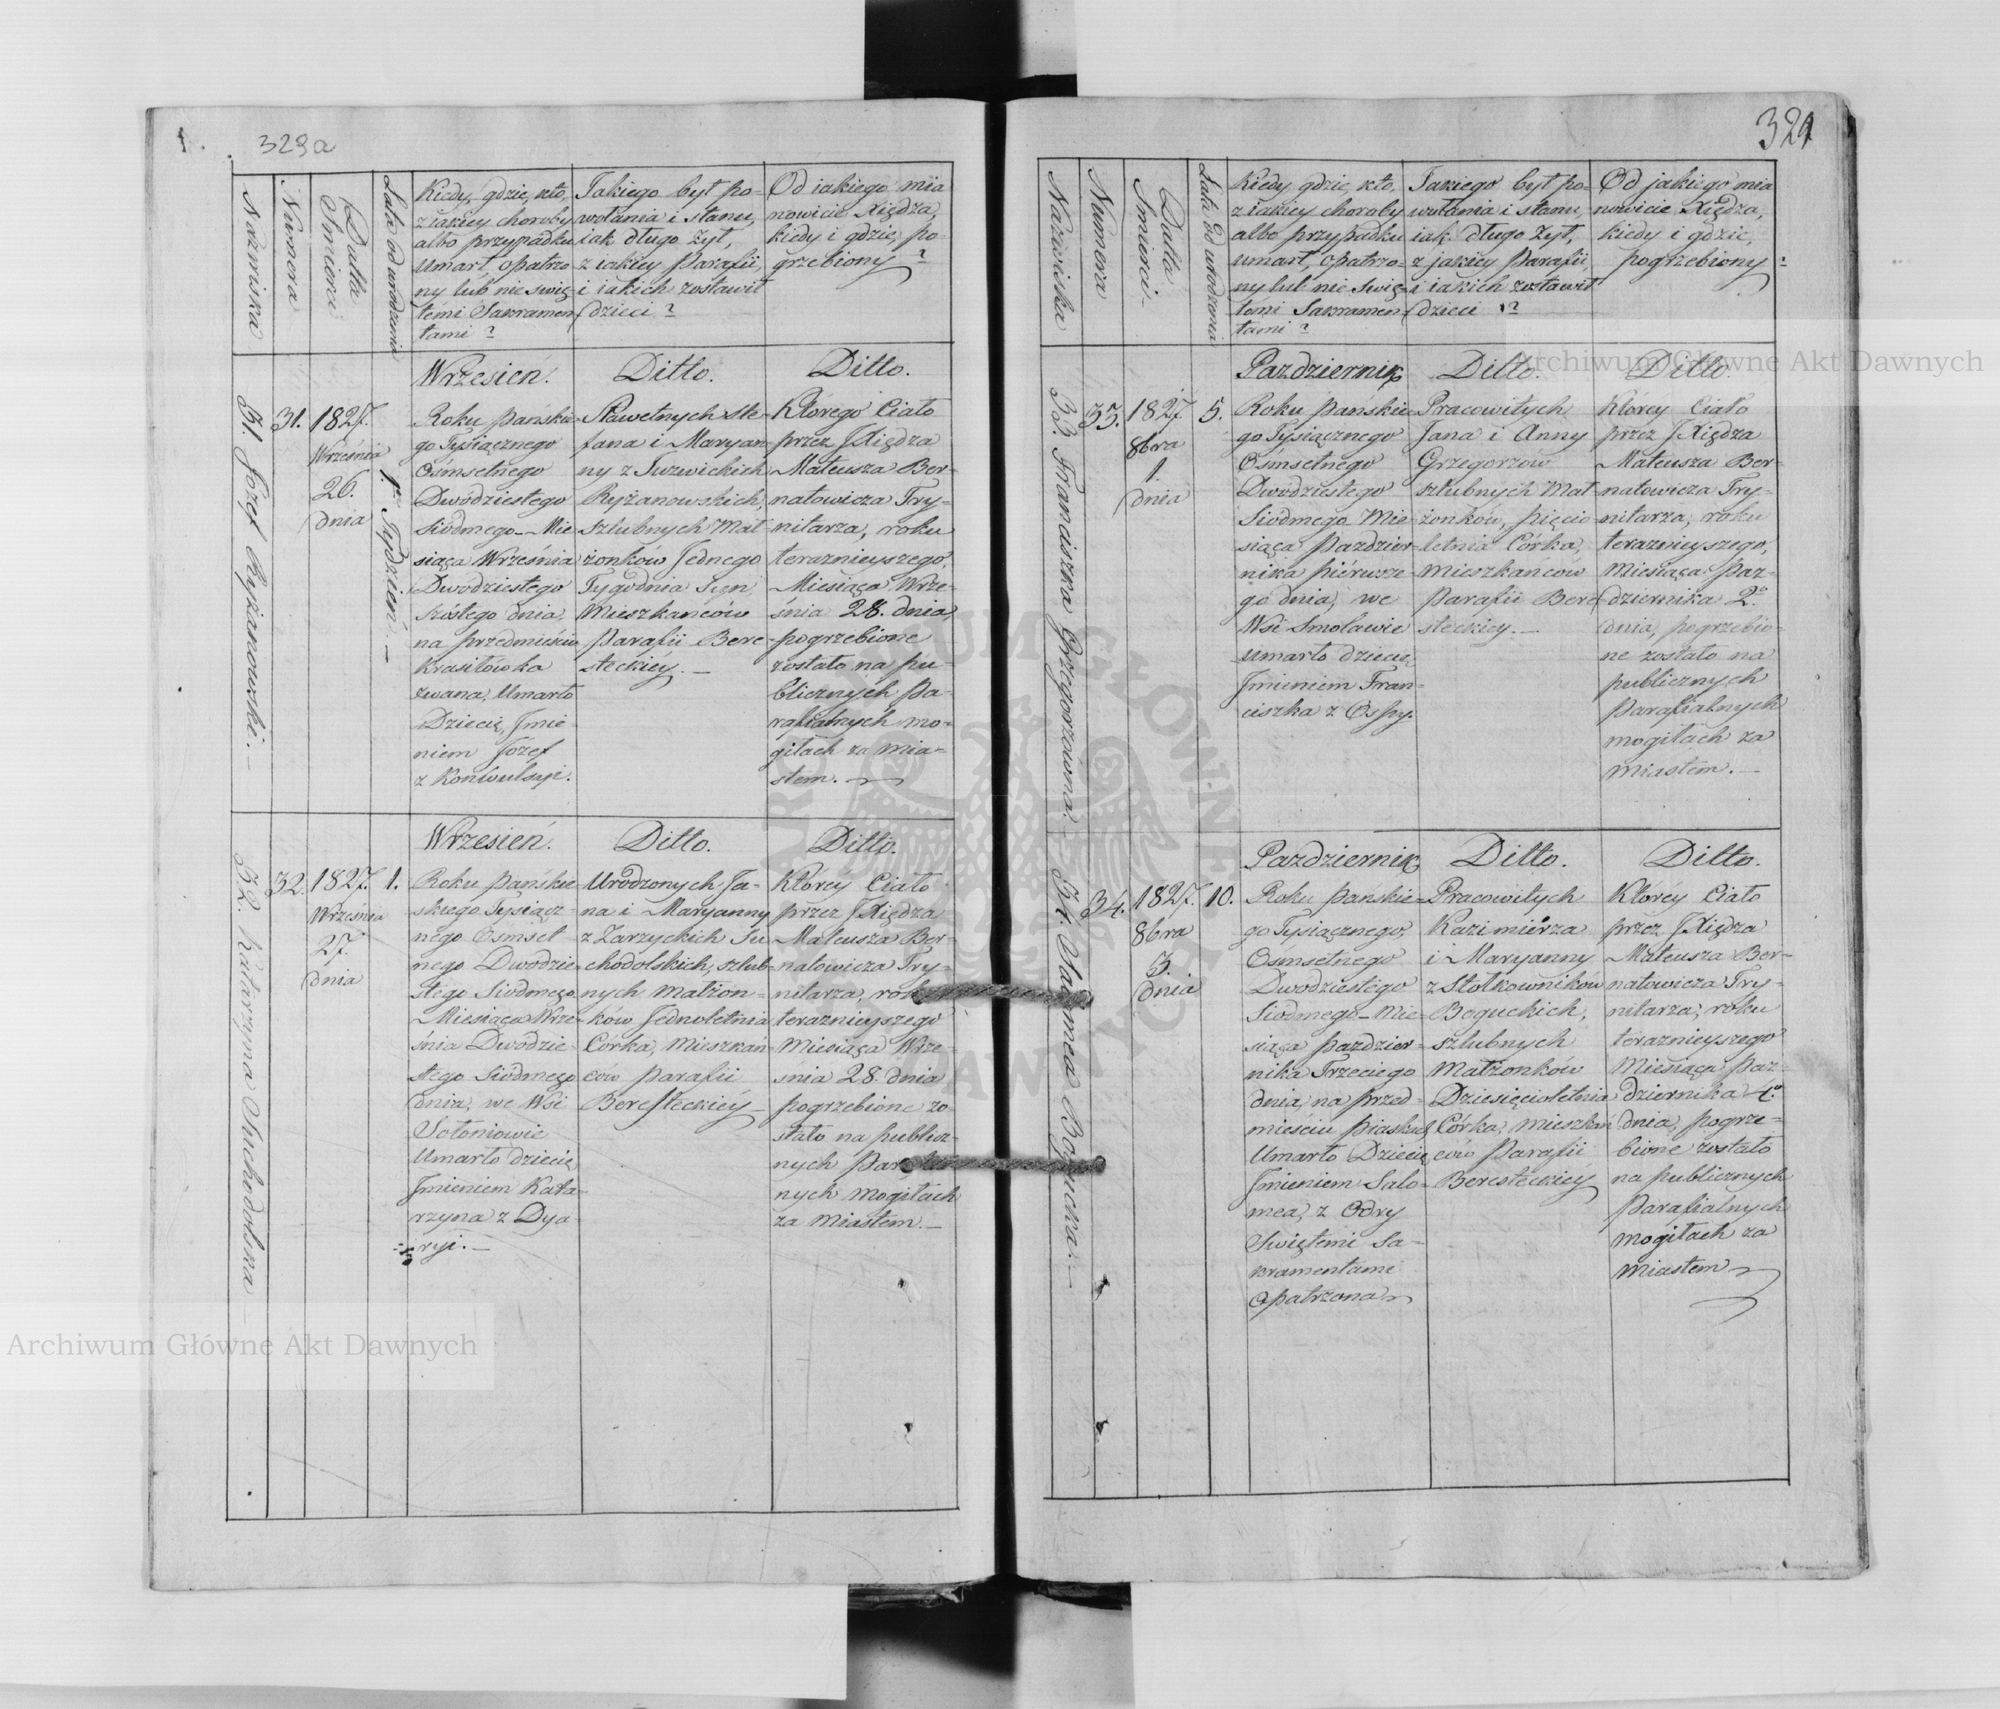 1.
323a
Nazwiska
Numera
Datta
Smierci
Lata od urodzenia
Kiedy, gdzie, kto,
z iakiey choroby
albo przypadku
umarł, opatrzo
ny lub nie Swię-
temi Sakramen
tami?
Jakiego był po-
wołania i stanu,
iak długo żył,
z iakiey Parafii,
i iakich zostawił
dzieci?
Od iakiego mia
nowicie Xiędza,
kiedy i gdzie, po-
grzebiony?
31. Jozef Ryżanowski. —
31.
1827.
Września
26.
dnia
1en Tydzień. —
Wrzesień.
Roku Pańskie
go Tysiącznego
Ośmsetnego
Dwódziestego
Siódmego Mie
siąca Września
Dwódziestego
szóstego dnia,
na przedmieściu
Krasiłówka
zwana, Umarło
Dziecię, Jmie-
niem Józef
z Konwulsyi.
Ditto.
Sławetnych Ste-
fana i Maryan
ny z Juzwickich
Ryżanowskich,
Szlubnych Mał-
żonków Jednego
Tygodnia Syn,
Mieszkańców
Parafii Bere-
steckiey. —
Ditto.
Którego Ciało
przez JXiędza
Mateusza Ber-
natowicza Try-
nitarza, roku
teraznieyszego,
Miesiąca Wrze-
śnia 28. dnia,
pogrzebione
zostało na pu-
blicznych Pa-
rafialnych mo-
giłach za mia-
stem. —
32. Katarzyna Suchodolska —
32.
1827.
Września
27.
dnia
1.
Wrzesień.
Roku Pańskie
skiego Tysiącz-
nego Osmset
nego Dwódzie
stego Siódmego
Miesiąca Wrze-
śnia Dwódzie-
stego Siódmego
dnia, we Wsi
Sołoniowie
Umarło dziecię
Jmieniem Kata-
rzyna z Dya-
ryi. —
Ditto.
Urodzonych Ja-
na i Maryanny
z Zarzyckich Su
chodolskich, szlub-
nych Małżon-
ków Jednoletnia
Córka, Mieszkań-
ców Parafii
Beresteckiey —
Ditto.
Którey Ciało
przez JXiędza
Mateusza Ber-
natowicza Try-
nitarza, roku
teraznieyszego
Miesiąca Wrze-
snia 28. dnia
pogrzebione zo-
stało na publicz-
nych Parafial
nych Mogiłach
za Miastem. —
321
Nazwiska
Numera
Datta
Smierci.
Lata Od urodzenia
Kiedy, gdzie, kto,
z iakiey choroby
albo przypadku
umarł, opatrzo-
ny lub nie Swię-
temi Sakramen
tami?
Jakiego był po-
wołania i stanu,
iak długo żył,
z jakiey Parafii,
i iakich zostawił
dzieci?
Od jakiego mia
nowicie Xiędza,
kiedy i gdzie,
pogrzebiony?
33. Franciszka Grzegorzówna.
33.
1827.
8bra
1.
dnia
5.
Pazdziernik
Roku Pańskie
go Tysiącznego
Ośmsetnego
Dwódziestego
Siódmego Mie
siąca Pazdzier-
nika piérwsze-
go dnia, we
Wsi Smolawie
umarło dziecię
Jmieniem Fran-
ciszka z Ospy.
Ditto.
Pracowitych
Jana i Anny
Grzegorzów
szlubnych Mał
żonków, pięcio
letnia Córka,
mieszkańców
Parafii Bere
steckiey. —
Ditto.
Którey Ciało
przez JXiędza
Mateusza Ber-
natowicza Try-
nitarza, roku
teraznieyszego,
Miesiąca Paz-
dziernika 2o
dnia, pogrzebio-
ne zostało na
publicznych
Parafialnych
mogiłach za
Miastem. —
34. Salomea Bogucka. —
34.
1827.
8bra
3.
dnia
10.
Pazdziernik
Roku Pańskie-
go Tysiącznego,
Ośmsetnego
Dwodziestego
Siódmego Mie-
siąca Pazdzier-
nika Trzeciego
dnia, na przed-
mieściu Piaskuch
Umarło Dziecię
Jmieniem Salo-
mea, z Odry
Swiętemi Sa-
kramentami
Opatrzona
Ditto.
Pracowitych
Kazimiérza
i Maryanny
z Stołkowników
Boguckich,
szlubnych
Małżonków
Dziesięcioletnia
Córka, mieszkań
ców Parafii
Beresteckiey
Ditto.
Którey Ciało
przez JXiędza
Mateusza Ber-
natowicza Try-
nitarza, roku
teraznieyszego
Miesiąca Paz-
dziernika 4o
dnia, pogrze-
bione zostało
na publicznych
Parafialnych
mogiłach za
Miastem
Archiwum Główne Akt Dawnych
Archiwum Główne Akt Dawnych
ARCHIWUM GŁÓWNE AKT DAWNYCH